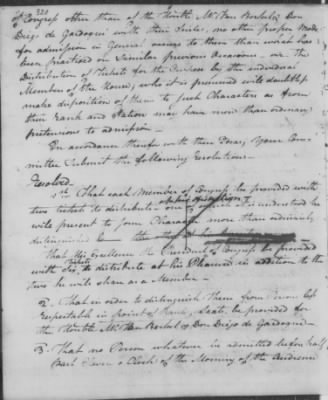 320
of Congress other than of the Honble Mr. Van Berkel & Don
Diego de Gardoqui with their Suites, no other proper Mode
for admission in General occurs to them than what has
been practised on similar previous Occasions - viz. The
Distribution of Tickets for the Purpose by the individual
Members of the House; who it is presumed will doubtless
make disposition of them to such Characters as from
their Rank and Station may have more than ordinary
pretensions to admission -
In accordance therefore with these Ideas, Your Com-
mittee Submit the following Resolutions -
Resolved
1st. That each Member of Congress be provided with
two tickets to distribute one of which it is understood he
will present to some Character more than ordinarily
distinguished
That His Excellence the President of Congress be provided
with Six Tickets to distribute at his Pleasure in addition to the
two he will share as a Member -
2. That in order to distinguish them from Persons less
respectable in point of Rank, Seats be provided for
the Honble Mr. Van Berkel & Don Diego de Gardoqui -
3. That no Person whatever be admitted before half
past Eleven o Clock of the Morning of the Audience